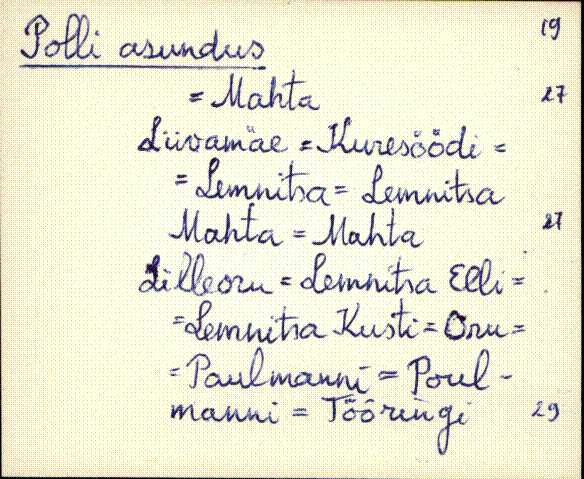 19
Polli asundus
= Mahta 27
Liivamäe = Kuresöödi =
= Lemnitsa = Lemnitsa
Mahta = Mahta 27
Lilleoru = Lemnitsa Elli =
= Lemnitsa Kusti = Oru =
= Paulmanni = Poul-
manni = Tööringi 29